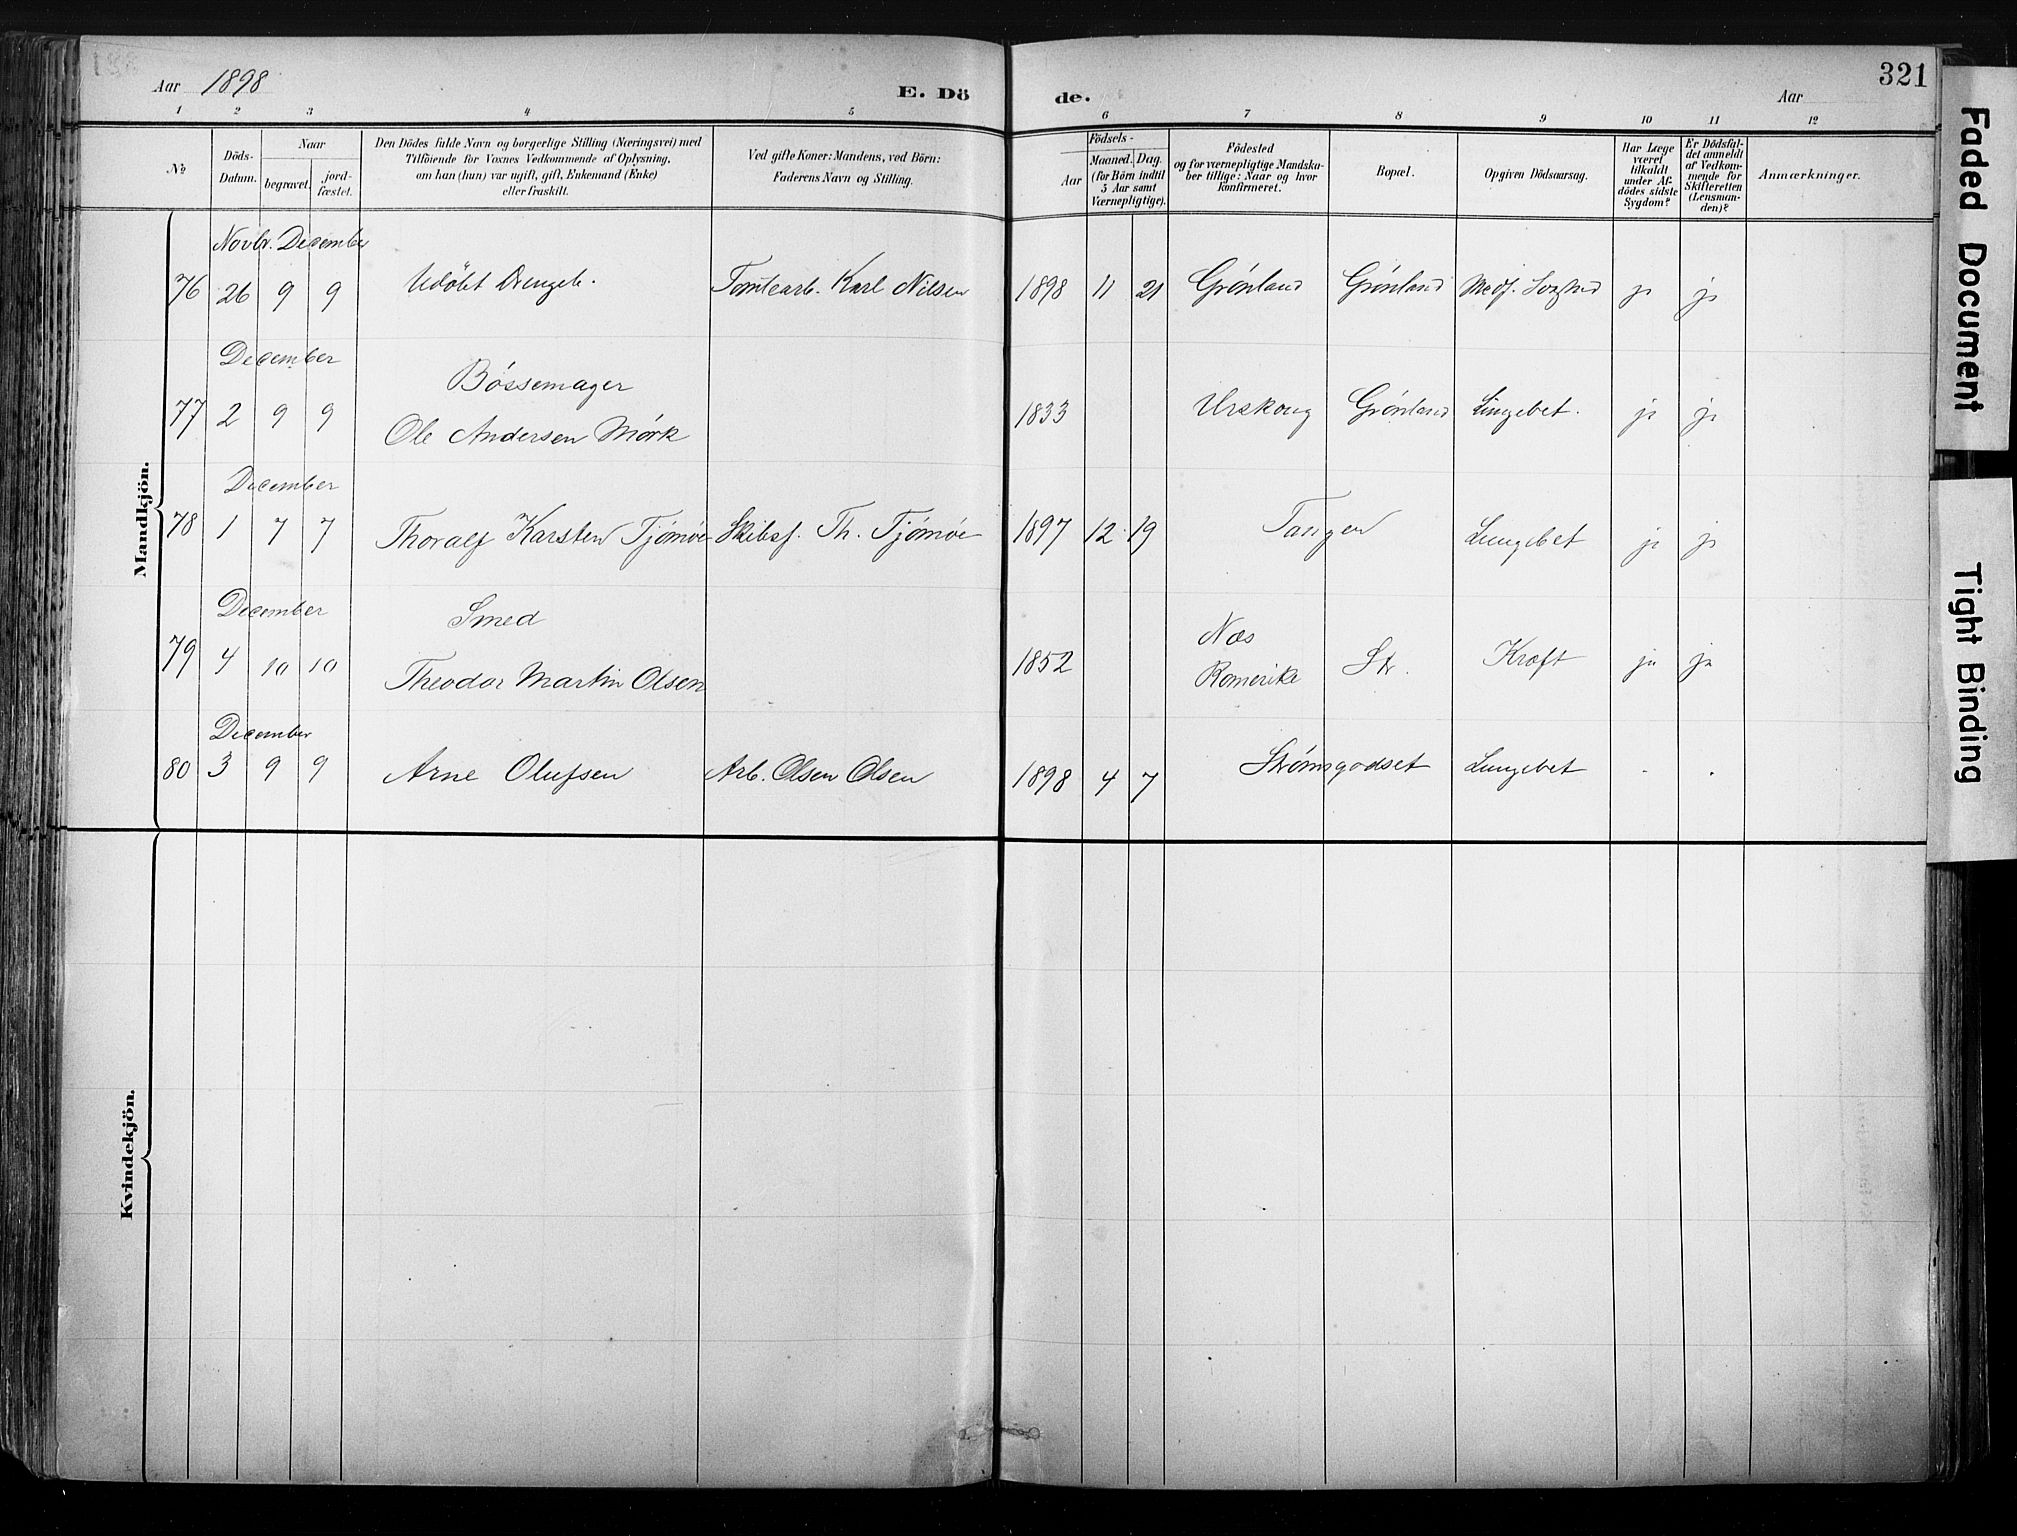 Aar 1898
E. Dö
de.
Aar
321
1 2 3 4 5 6 7 8 9 10 11 12
No
Döds-
Datum.
Naar
begravet.
jord-
fæstet.
Den Dödes fulde Navn og borgerlige Stilling (Næringsvei) med
Tilföiende for Voxnes Vedkommende af Oplysning,
om han (hun) var ugift, gift, Enkemand (Enke)
eller fraskilt.
Ved gifte Koner: Mandens, ved Börn:
Faderens Navn og Stilling.
Födsels-
Aar
Maaned. Dag.
(for Börn indtil
5 Aar samt
Værnepligtige).
Födested
og for værnepligtige Mandska-
ber tillige: Naar og hvor
konfirmeret.
Bopæl.
Opgiven Dödsaarsag.
Har Læge
været
tilkaldt
under Af-
dödes sidste
Sygdom?
Er Dödsfal-
det anmeldt
af Vedkom-
mende for
Skifteretten
(Lensman-
den)?
Anmærkninger.
Mandkjön.
Novbr. December
76 26 9 9 Udöbt Drengeb. Tomtearb. Karl Nilsen 1898 11 21 Grønland Grønland Medf. ja ja
December
Bøssemager
77 2 9 9 Ole Andersen Mörk 1833 Urskoug Grønland Lungebet. ja ja
December
78 1 7 7 Thoralf Karsten Tjømøe Skibsf. Th. Tjømøe 1897 12 19 Tangen Lungebet ja ja
December
Smed
79 4 10 10 Theodor Martin Olsen 1852 Næs Romerike Str. Kræft ja ja
December
80 3 9 9 Arne Olufsen Arb. Olsen Olsen 1898 4 7 Strømsgodset Lungebet - -
Kvindekjön.
Faded Document
Tight Binding